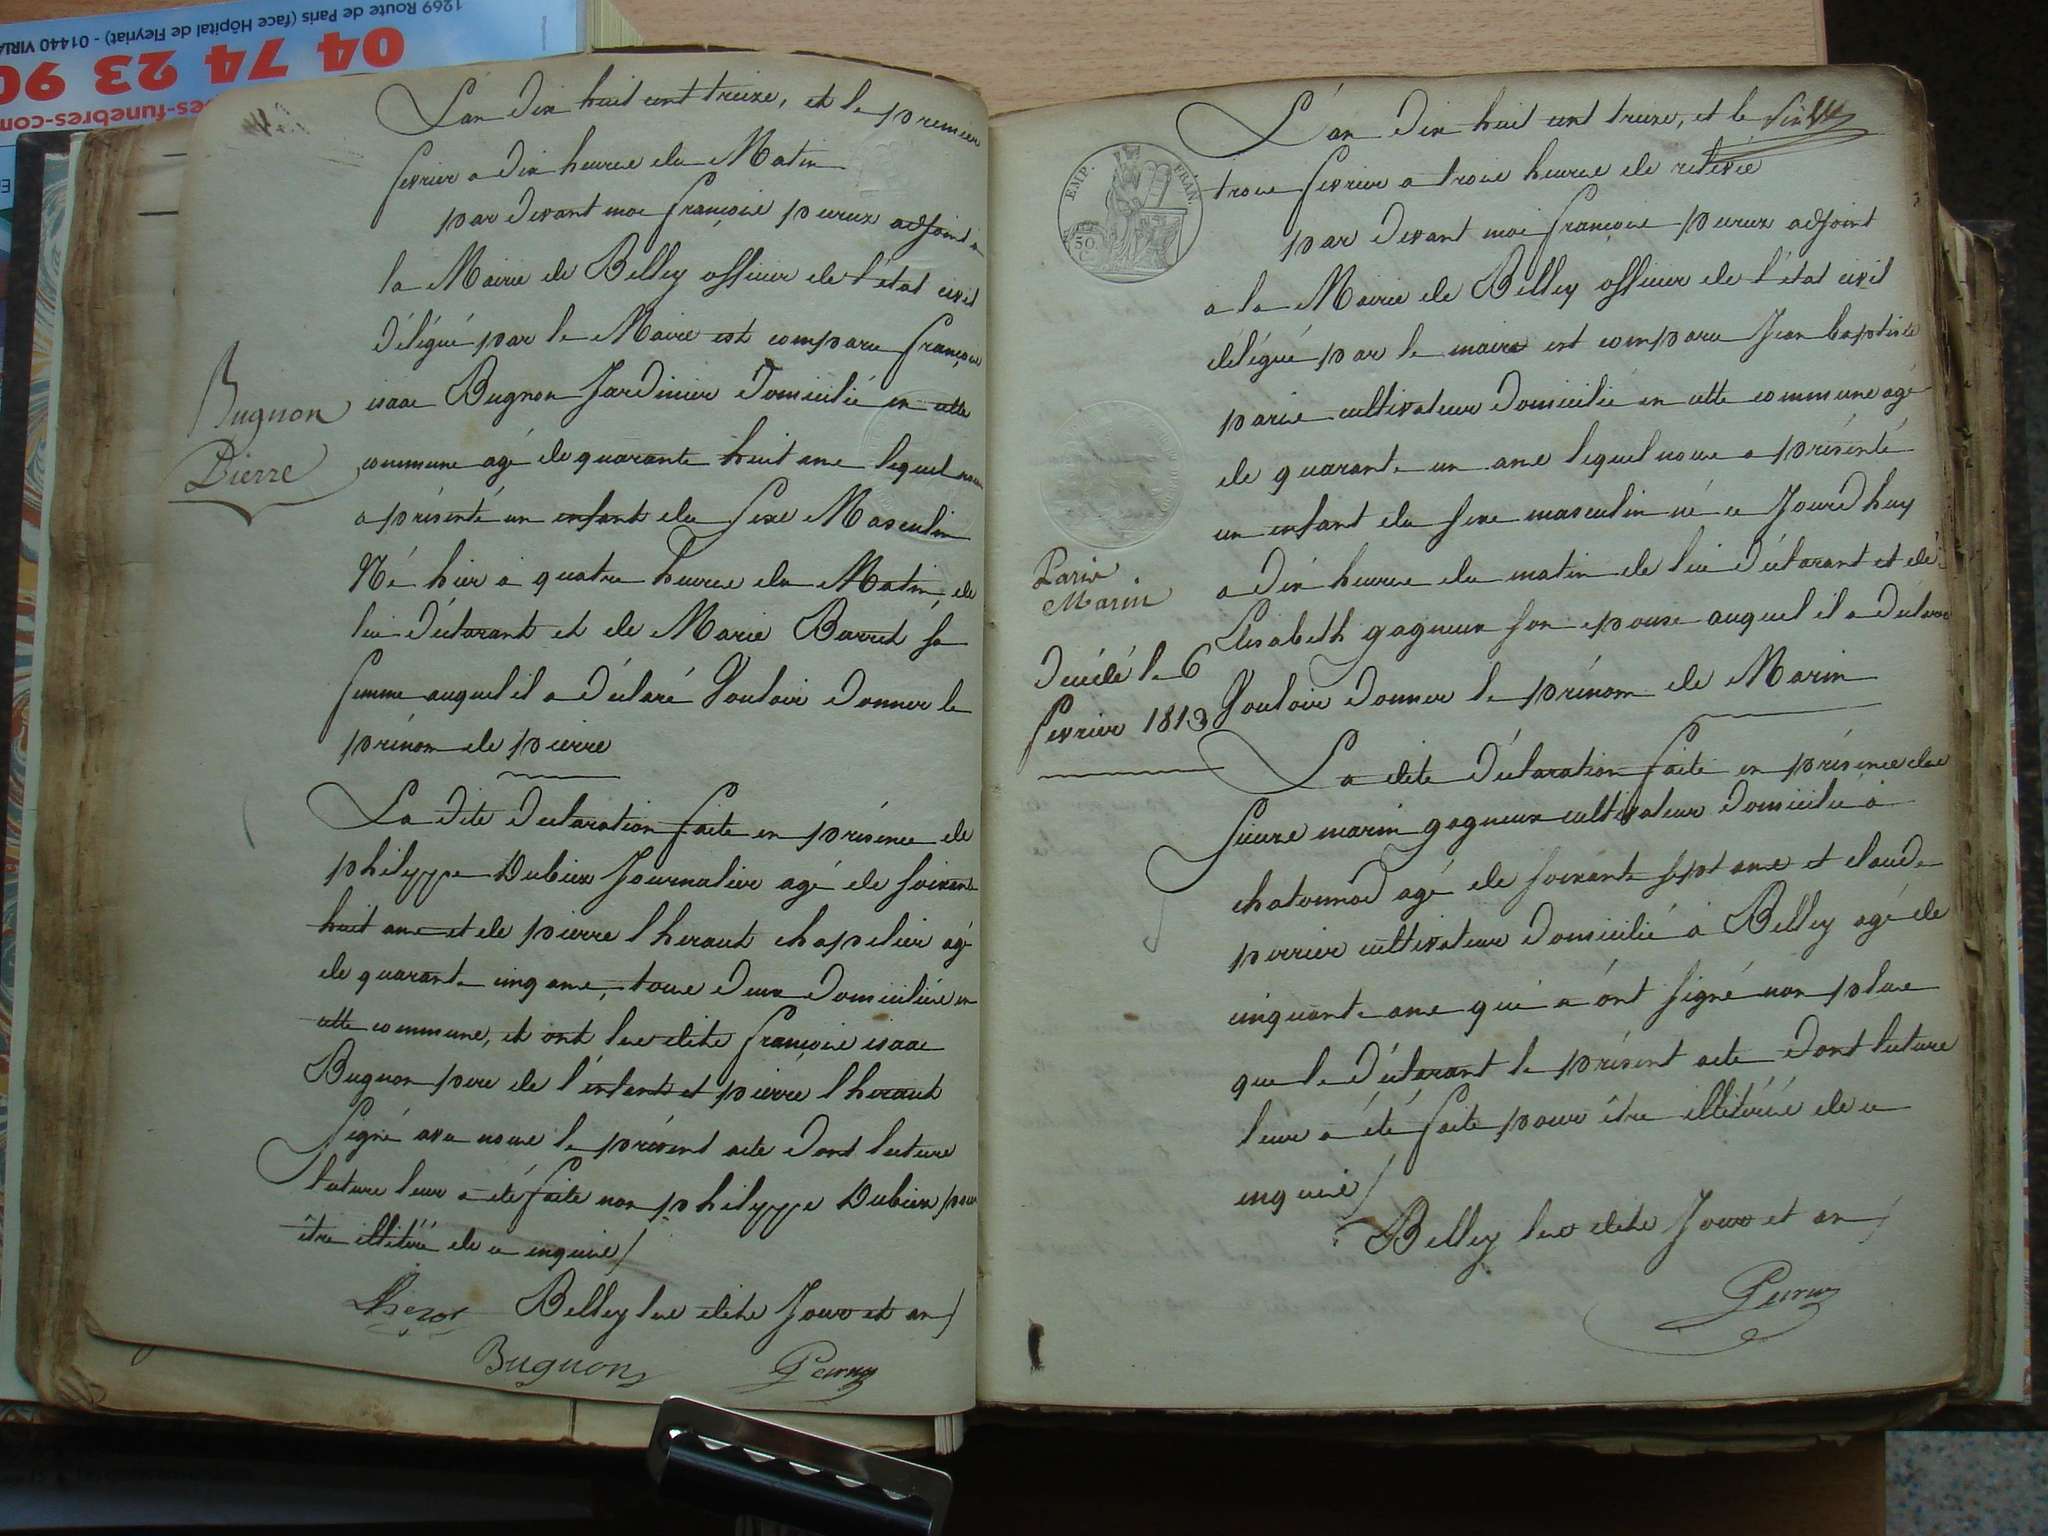 1269 Route de Paris (face Hôpital de Fleyriat) - 01440 VIRIA
04 74 23 90
es-funebres-com
L'an dix huit cent treize, et le premier
fevrier a dix heures du Matin
par devant moi françois pereux adjoint a
la Mairie de Belley officier de l'état civil
délégué par le Maire est comparu françois
isaac Bugnon Jardinier Domicilié en cette
commune agé de quarante huit ans lequel nous
a présenté un enfant du sexe Masculin
Né hier a quatre heures du Matin, de
lui déclarant et de Marie Barret sa
femme auquel il a déclaré Vouloir donner le
prénom de pierre
Bugnon
Pierre
La dite déclaration faite en présence de
philippe Dubieux Journalier agé de soixante
huit ans et de pierre lheraut chapelier agé
de quarante cinq ans, tous deux domiciliés en
cette commune, et ont les dits françois isaac
Bugnon pere de l'enfant et pierre lheraut
signé avec nous le présent acte dont lecture
lecture leur a été faite non philippe Dubieux pour
être illitéré de ce enquis/
Belley les dits Jour et an/
Lherot
Bugnon
Pereux
EMP. FRAN.
50 C.
L'an dix huit cent treize, et le
trois fevrier a trois heures de relevée
par devant moi françois pereux adjoint
a la Mairie de Belley officier de l'état civil
délégué par le maire est comparu Jean baptiste
paris cultivateur domicilié en cette commune agé
de quarante un ans lequel nous a présenté
un enfant du sexe masculin né ce Jourd'huy
a dix heures du matin de lui déclarant et de
Elisabeth gagneux son epouse auquel il a déclaré
Vouloir donner le prénom de Marin
Paris
Marin
Décédé le 6
fevrier 1813
La dite déclaration faite en présence des
sieurs marin gagneux cultivateur domicilié à
chatonnod agé de soixante sept ans et claude
perrier cultivateur domicilié à Belley agé de
cinquante ans qui n'ont signé non plus
que le déclarant le présent acte dont lecture
leur a été faite pour être illitérés de ce
enquis/
Belley les dits Jour et an/
Pereux